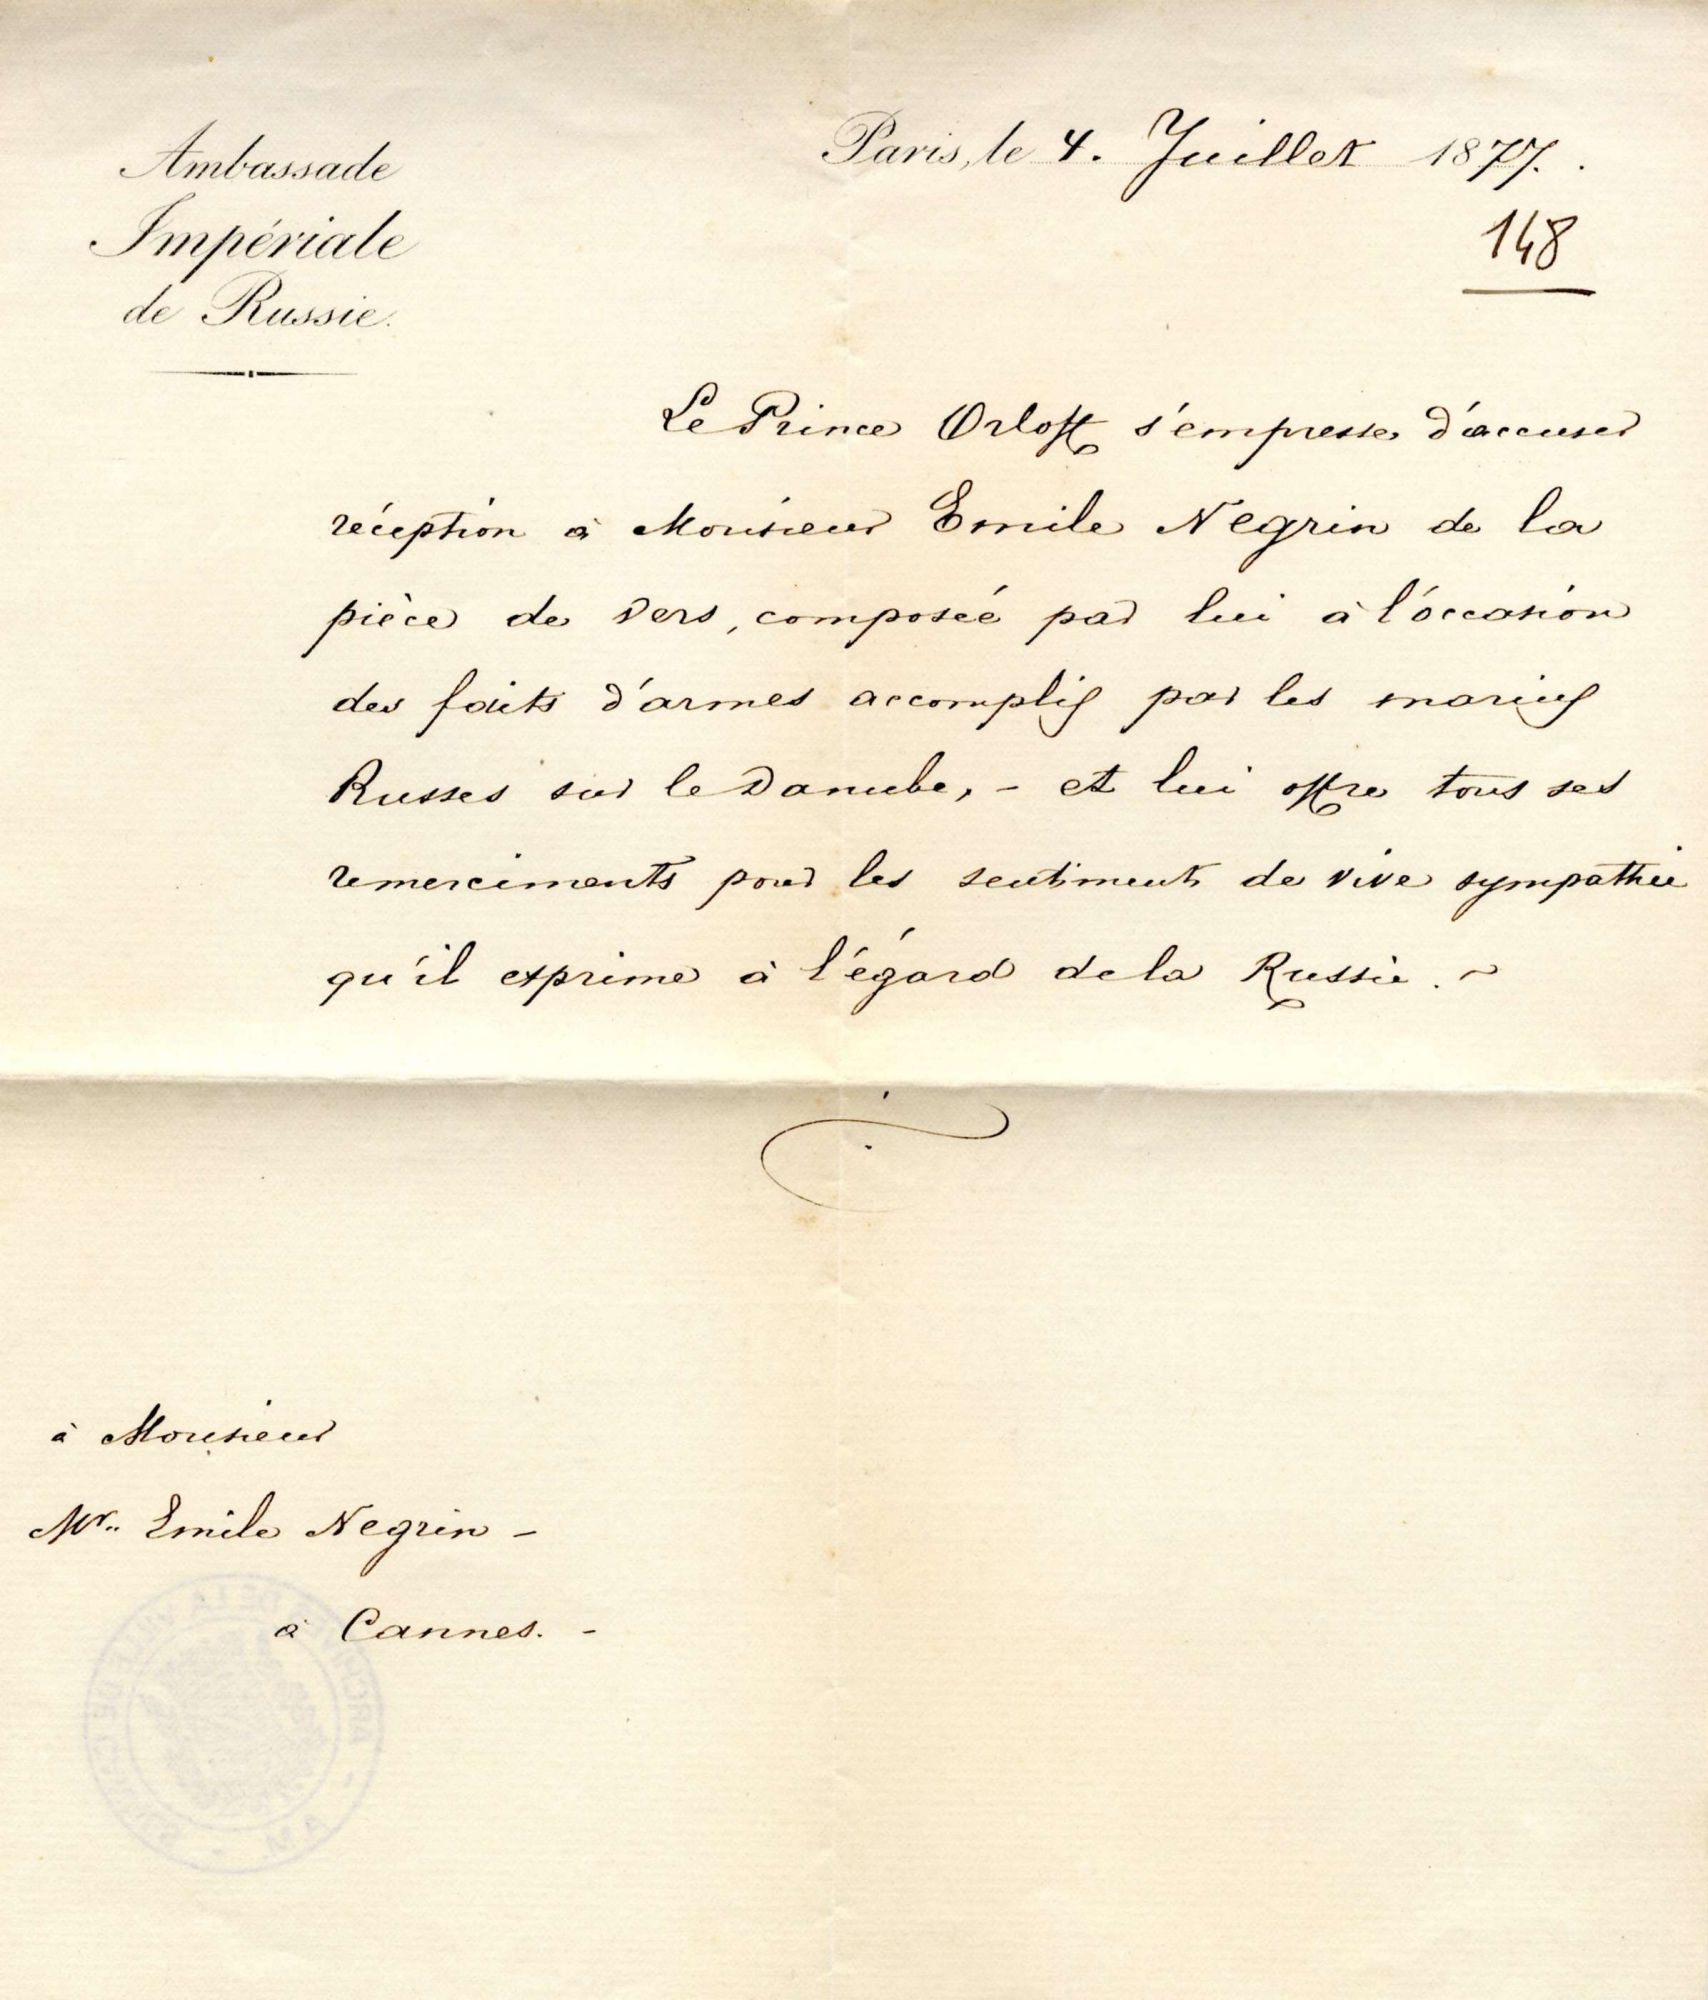 Ambassade
Impériale
de Russie.
Paris, le 4. Juillet 1877.
148
Le Prince Orloff s'empresse d'accuser
réception à Monsieur Emile Negrin de la
pièce de vers, composée par lui à l'occasion
des faits d'armes accomplis par les marins
Russes sur le Danube, - et lui offre tous ses
remerciments pour les sentiments de vive sympathie
qu'il exprime à l'égard de la Russie. ~
à Monsieur
Mr. Emile Negrin -
à Cannes. -